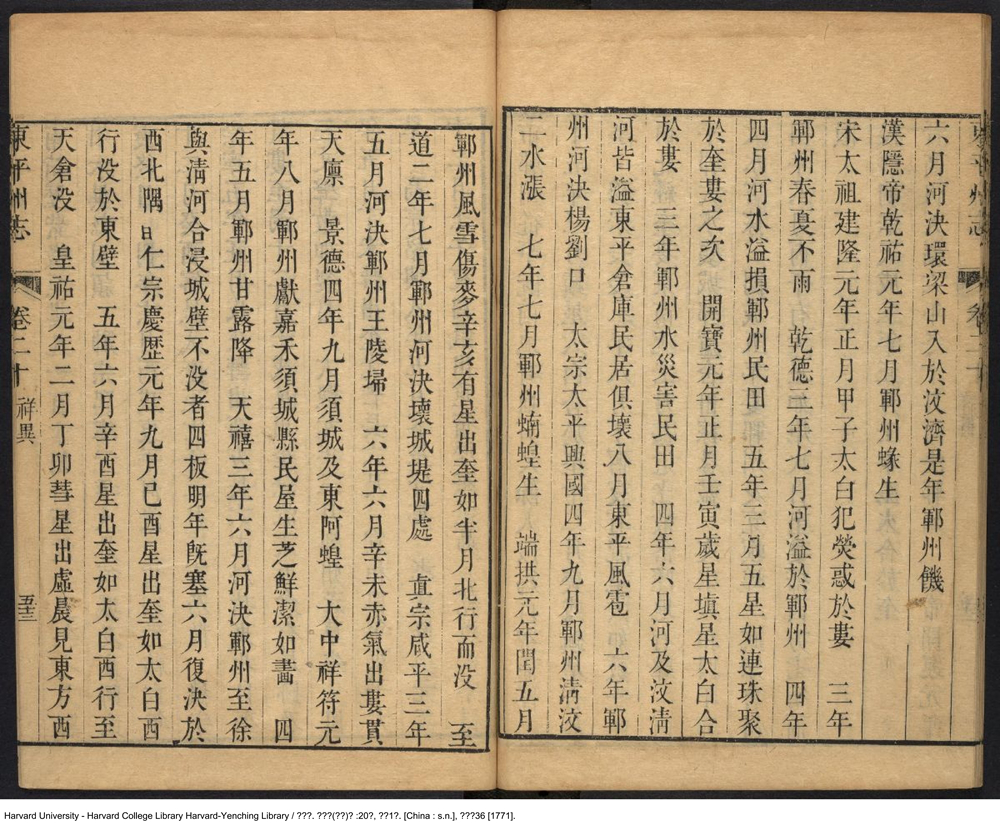 六月河決環梁山入於汶濟是年鄆州饑
漢隱帝乾祐元年七月鄆州蝝生
宋太祖建隆元年正月甲子太白犯熒惑於婁　三年
鄆州春夏不雨　乾德三年七月河溢於鄆州　四年
四月河水溢損鄆州民田　五年三月五星如連珠聚
於奎婁之次　開寶元年正月壬寅歲星填星太白合
於婁　三年鄆州水災害民田　四年六月河及汶清
河皆溢東平倉庫民居俱壞八月東平風雹　六年鄆
州河決楊劉口　太宗太平興國四年九月鄆州清汶
二水漲　七年七月鄆州蝻蝗生　端拱元年閏五月
鄆州風雪傷麥辛亥有星出奎如半月北行而没　至
道二年七月鄆州河決壞城堤四處　真宗咸平三年
五月河決鄆州王陵埽　六年六月辛未赤氣出婁貫
天廪　景德四年九月須城及東阿蝗　大中祥符元
年八月鄆州獻嘉禾須城縣民屋生芝鮮潔如畫　四
年五月鄆州甘露降　天禧三年六月河決鄆州至徐
與清河合浸城壁不没者四板明年既塞六月復決於
西北隅　仁宗慶歷元年九月己酉星出奎如太白西
行没於東壁　五年六月辛酉星出奎如太白西行至
天倉没　皇祐元年二月丁卯彗星出虛晨見東方西
東平州志　卷二十　祥異　五三
Harvard University - Harvard College Library Harvard-Yenching Library / ???. ???(??)? :20?, ??1?. [China : s.n.], ???36 [1771].